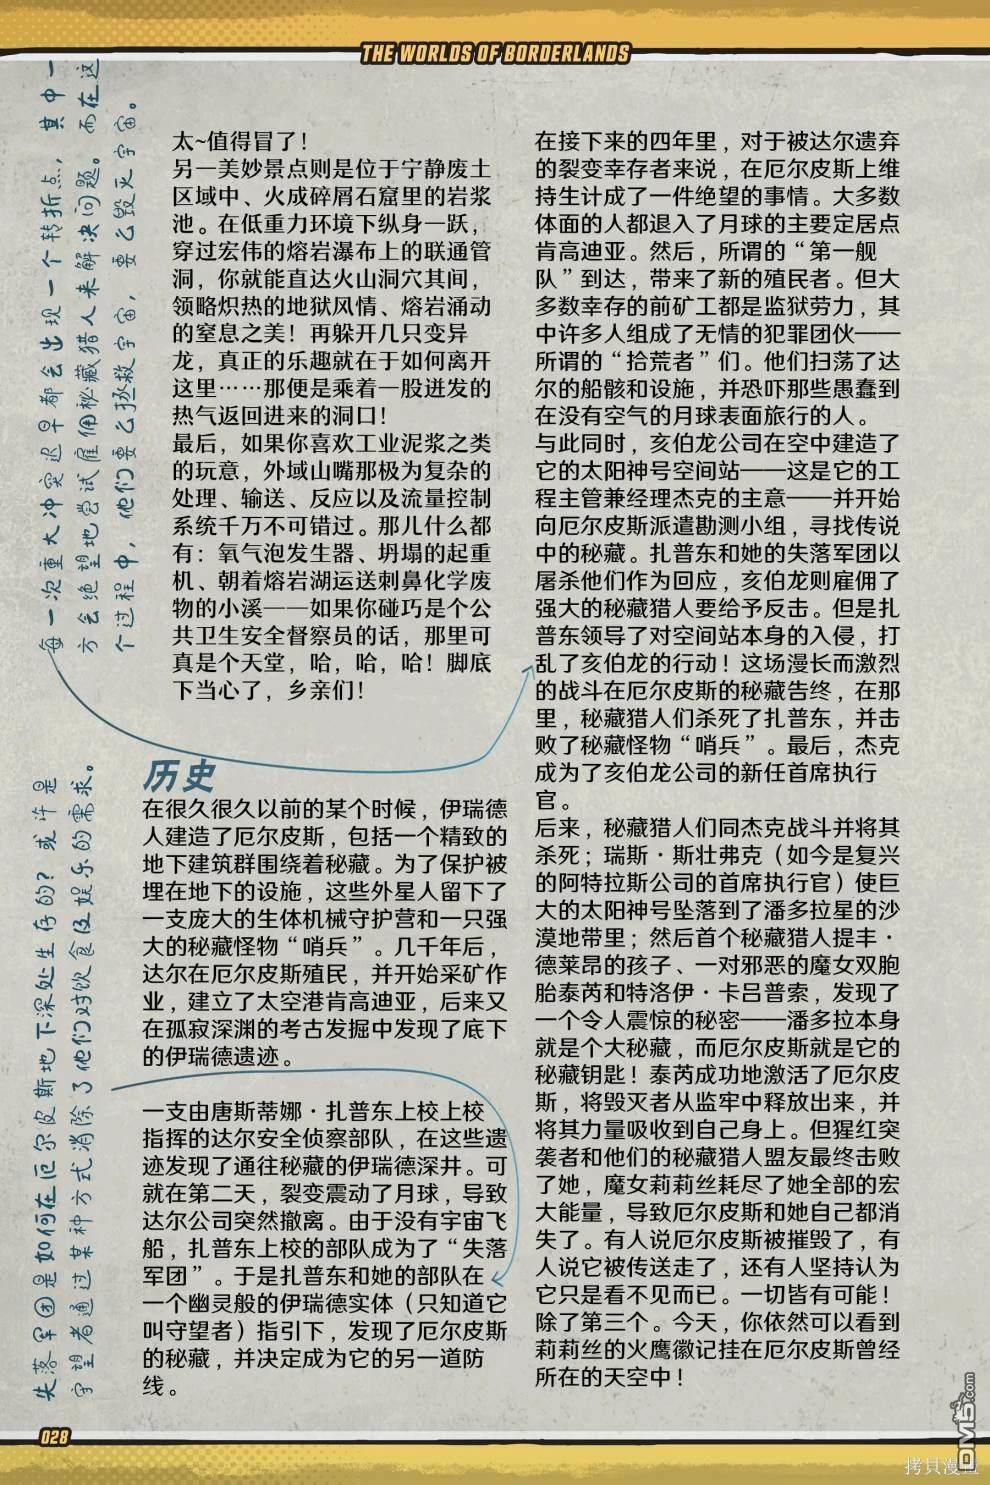 THE WORLDS OF BORDERLANDS
每一次重大冲突迟早都会出现一个转折点，其中一
方会绝望地尝试雇佣秘藏猎人来解决问题。而在这
个过程中，他们要么拯救宇宙，要么毁灭宇宙。
太~值得冒了！
另一美妙景点则是位于宁静废土
区域中、火成碎屑石窟里的岩浆
池。在低重力环境下纵身一跃，
穿过宏伟的熔岩瀑布上的联通管
洞，你就能直达火山洞穴其间，
领略炽热的地狱风情、熔岩涌动
的窒息之美！再躲开几只变异
龙，真正的乐趣就在于如何离开
这里……那便是乘着一股迸发的
热气返回进来的洞口！
最后，如果你喜欢工业泥浆之类
的玩意，外域山嘴那极为复杂的
处理、输送、反应以及流量控制
系统千万不可错过。那儿什么都
有：氧气泡发生器、坍塌的起重
机、朝着熔岩湖运送刺鼻化学废
物的小溪——如果你碰巧是个公
共卫生安全督察员的话，那里可
真是个天堂，哈，哈，哈！脚底
下当心了，乡亲们！
历史
在很久很久以前的某个时候，伊瑞德
人建造了厄尔皮斯，包括一个精致的
地下建筑群围绕着秘藏。为了保护被
埋在地下的设施，这些外星人留下了
一支庞大的生体机械守护营和一只强
大的秘藏怪物“哨兵”。几千年后，
达尔在厄尔皮斯殖民，并开始采矿作
业，建立了太空港肯高迪亚，后来又
在孤寂深渊的考古发掘中发现了底下
的伊瑞德遗迹。
一支由唐斯蒂娜·扎普东上校上校
指挥的达尔安全侦察部队，在这些遗
迹发现了通往秘藏的伊瑞德深井。可
就在第二天，裂变震动了月球，导致
达尔公司突然撤离。由于没有宇宙飞
船，扎普东上校的部队成为了“失落
军团”。于是扎普东和她的部队在
一个幽灵般的伊瑞德实体（只知道它
叫守望者）指引下，发现了厄尔皮斯
的秘藏，并决定成为它的另一道防
线。
失落军团是如何在厄尔皮斯地下深处生存的？或许是
守望者通过某种方式消除了他们对饮食及娱乐的需求。
在接下来的四年里，对于被达尔遗弃
的裂变幸存者来说，在厄尔皮斯上维
持生计成了一件绝望的事情。大多数
体面的人都退入了月球的主要定居点
肯高迪亚。然后，所谓的“第一舰
队”到达，带来了新的殖民者。但大
多数幸存的前矿工都是监狱劳力，其
中许多人组成了无情的犯罪团伙——
所谓的“拾荒者”们。他们扫荡了达
尔的船骸和设施，并恐吓那些愚蠢到
在没有空气的月球表面旅行的人。
与此同时，亥伯龙公司在空中建造了
它的太阳神号空间站——这是它的工
程主管兼经理杰克的主意——并开始
向厄尔皮斯派遣勘测小组，寻找传说
中的秘藏。扎普东和她的失落军团以
屠杀他们作为回应，亥伯龙则雇佣了
强大的秘藏猎人要给予反击。但是扎
普东领导了对空间站本身的入侵，打
乱了亥伯龙的行动！这场漫长而激烈
的战斗在厄尔皮斯的秘藏告终，在那
里，秘藏猎人们杀死了扎普东，并击
败了秘藏怪物“哨兵”。最后，杰克
成为了亥伯龙公司的新任首席执行
官。
后来，秘藏猎人们同杰克战斗并将其
杀死；瑞斯·斯壮弗克（如今是复兴
的阿特拉斯公司的首席执行官）使巨
大的太阳神号坠落到了潘多拉星的沙
漠地带里；然后首个秘藏猎人提丰·
德莱昂的孩子、一对邪恶的魔女双胞
胎泰芮和特洛伊·卡吕普索，发现了
一个令人震惊的秘密——潘多拉本身
就是个大秘藏，而厄尔皮斯就是它的
秘藏钥匙！泰芮成功地激活了厄尔皮
斯，将毁灭者从监牢中释放出来，并
将其力量吸收到自己身上。但猩红突
袭者和他们的秘藏猎人盟友最终击败
了她，魔女莉莉丝耗尽了她全部的宏
大能量，导致厄尔皮斯和她自己都消
失了。有人说厄尔皮斯被摧毁了，有
人说它被传送走了，还有人坚持认为
它只是看不见而已。一切皆有可能！
除了第三个。今天，你依然可以看到
莉莉丝的火鹰徽记挂在厄尔皮斯曾经
所在的天空中！
028
DM5.com
拷贝漫画